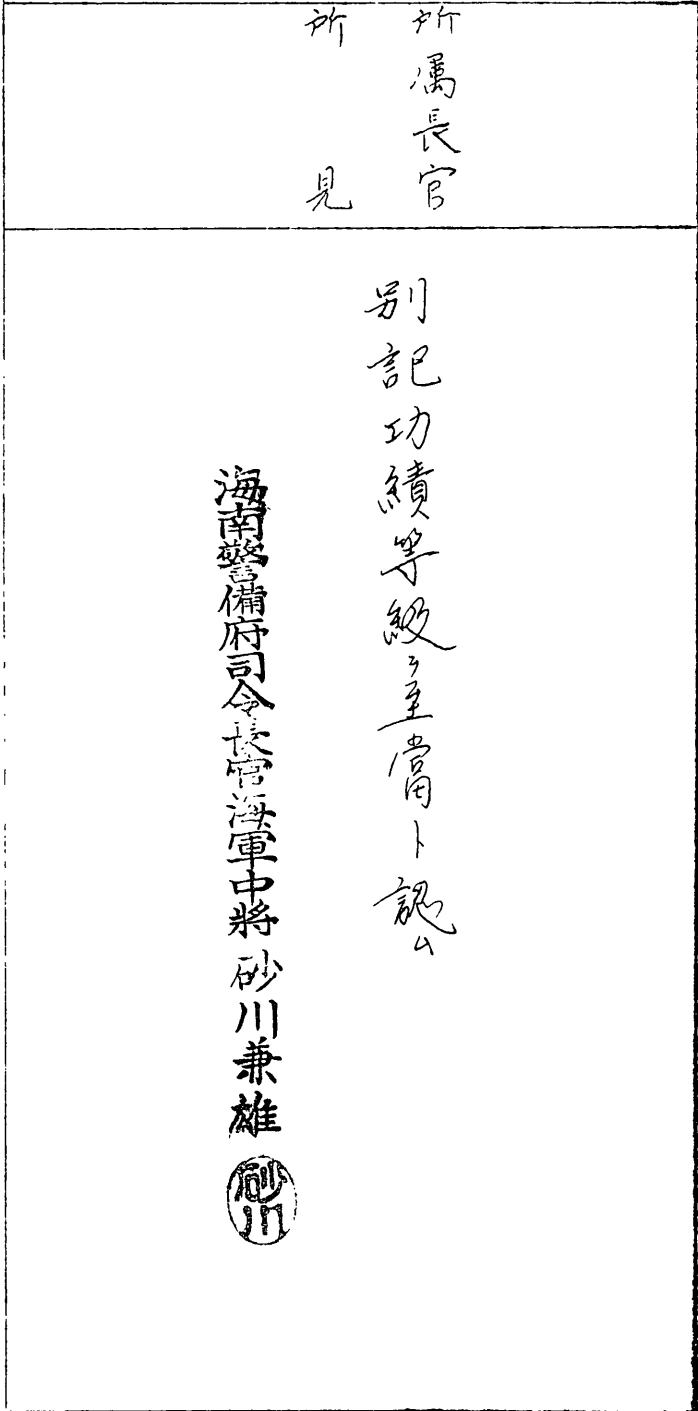 所属長官
所見
別記功績等級ヲ至當ト認ム
海南警備府司令長官海軍中將 砂川兼雄
砂川